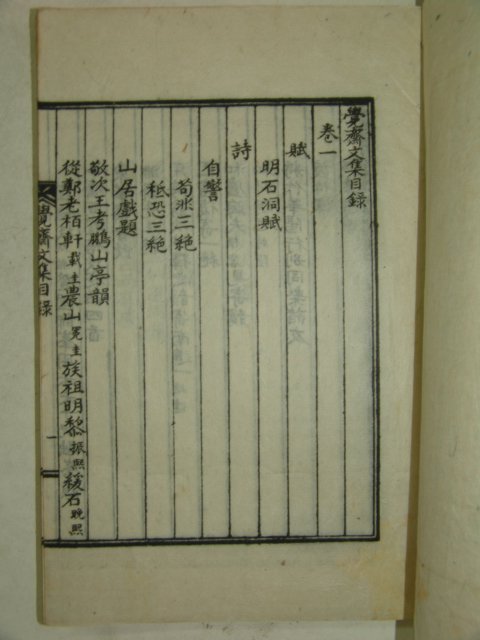 覺齋文集目錄
卷一
賦
明石洞賦
詩
自警
荀氷三絶
秪恐三絶
山居戱題
敬次王考鵬山亭韻
從鄭老栢軒載圭農山冕圭族祖明黎振熙緩石晩熙
覺齋文集目錄
一